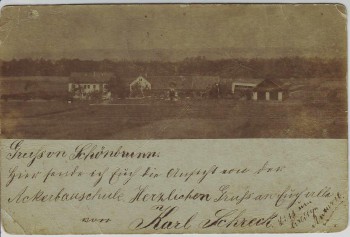 Gruss von Schönbrunn.
Hier sende ich Euch die Ansicht von der
Ackerbauschule. Herzlichen Gruss an Euch alle
von Karl Schreck